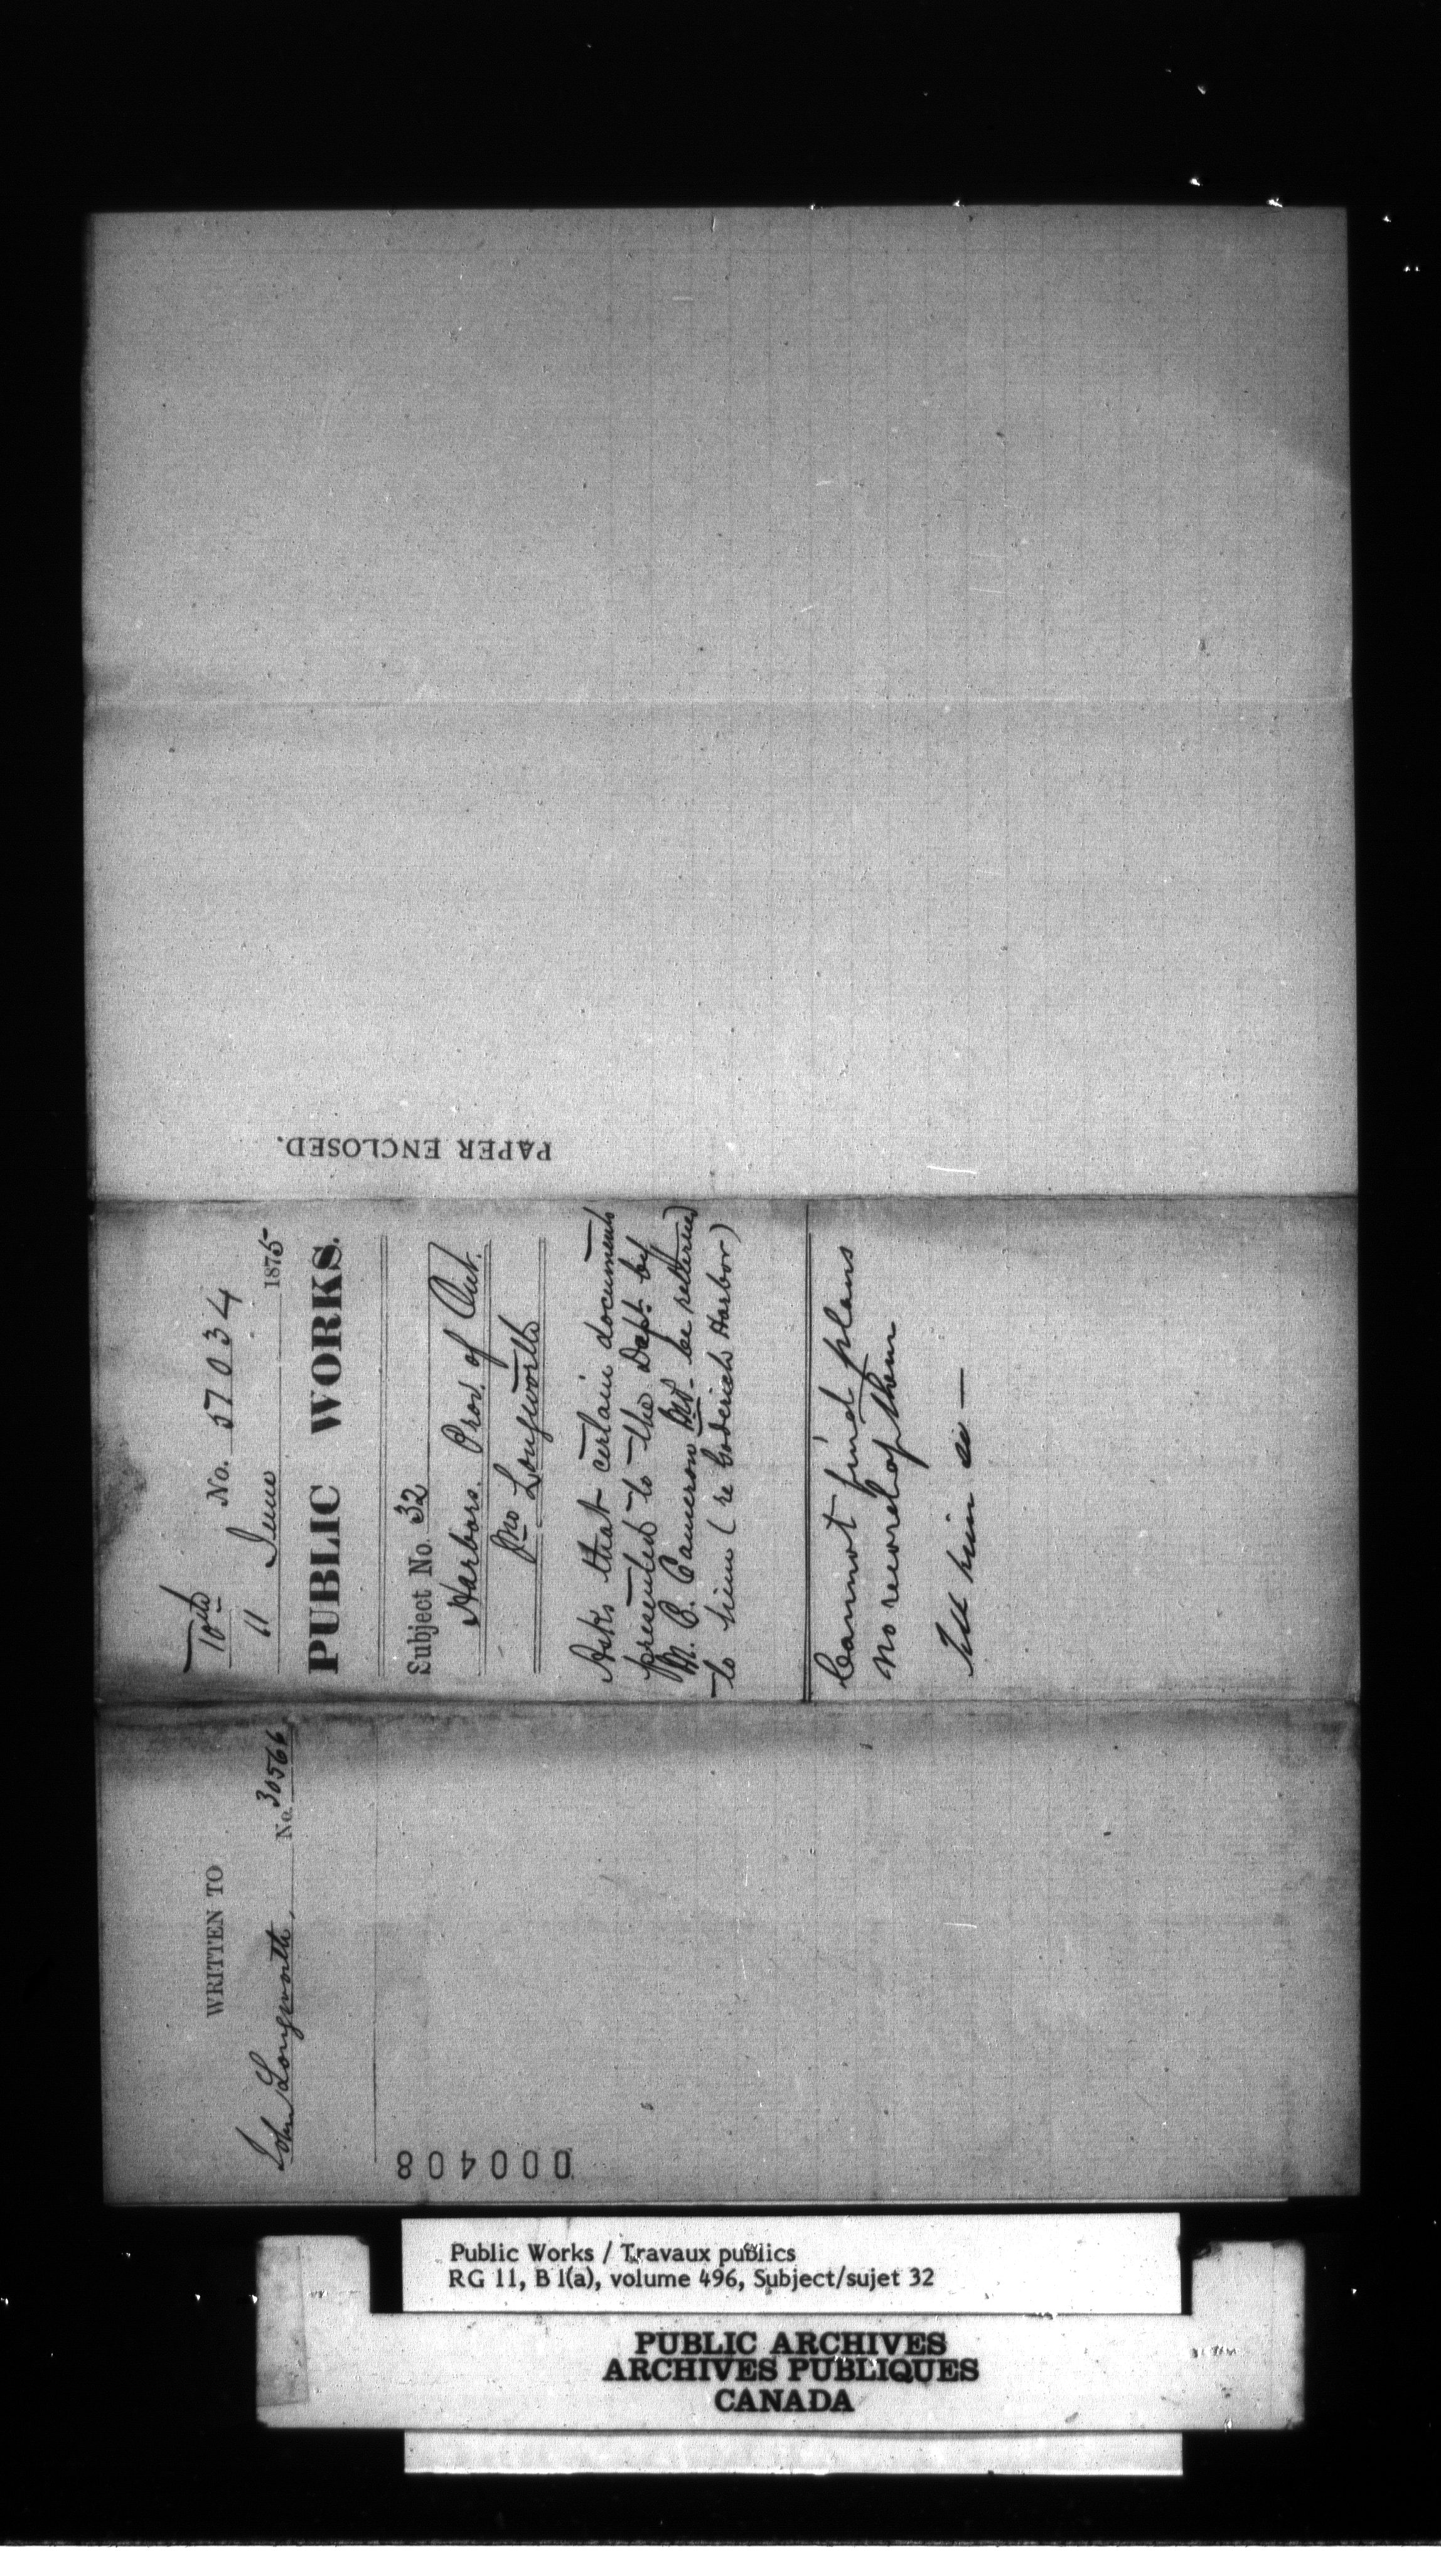 PAPER ENCLOSED.
No. 57034
11 June 1875
PUBLIC WORKS.
Subject No. 32
Harbors. Prov. of Ont.
Jno Longworth
Asks that certain documents
presented to the Dept. by
M. C. Cameron MP. be returned
to him (re Goderich Harbor)
Cannot find plans
no record of them
Tell him so —
WRITTEN TO
John Longworth, No. 30566
000408
Public Works / Travaux publics
RG 11, B 1(a), volume 496, Subject/sujet 32
PUBLIC ARCHIVES
ARCHIVES PUBLIQUES
CANADA